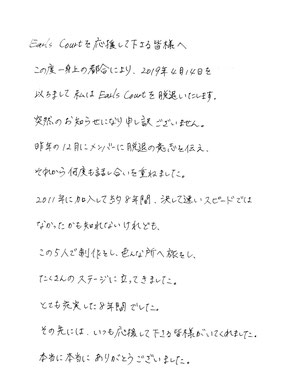 Earls Courtを応援して下さる皆様へ
この度一身上の都合により、2019年4月14日を
以ちまして私は Earls Courtを脱退いたします。
突然のお知らせになり申し訳ございません。
昨年の12月にメンバーに脱退の意志を伝え、
それから何度も話し合いを重ねました。
2011年に加入して約8年間、決して速いスピードでは
なかったかも知れないけれども、
この5人で制作をし、色んな所へ旅をし、
たくさんのステージに立ってきました。
とても充実した8年間でした。
その先には、いつも応援して下さる皆様がいてくれました。
本当に本当にありがとうございました。